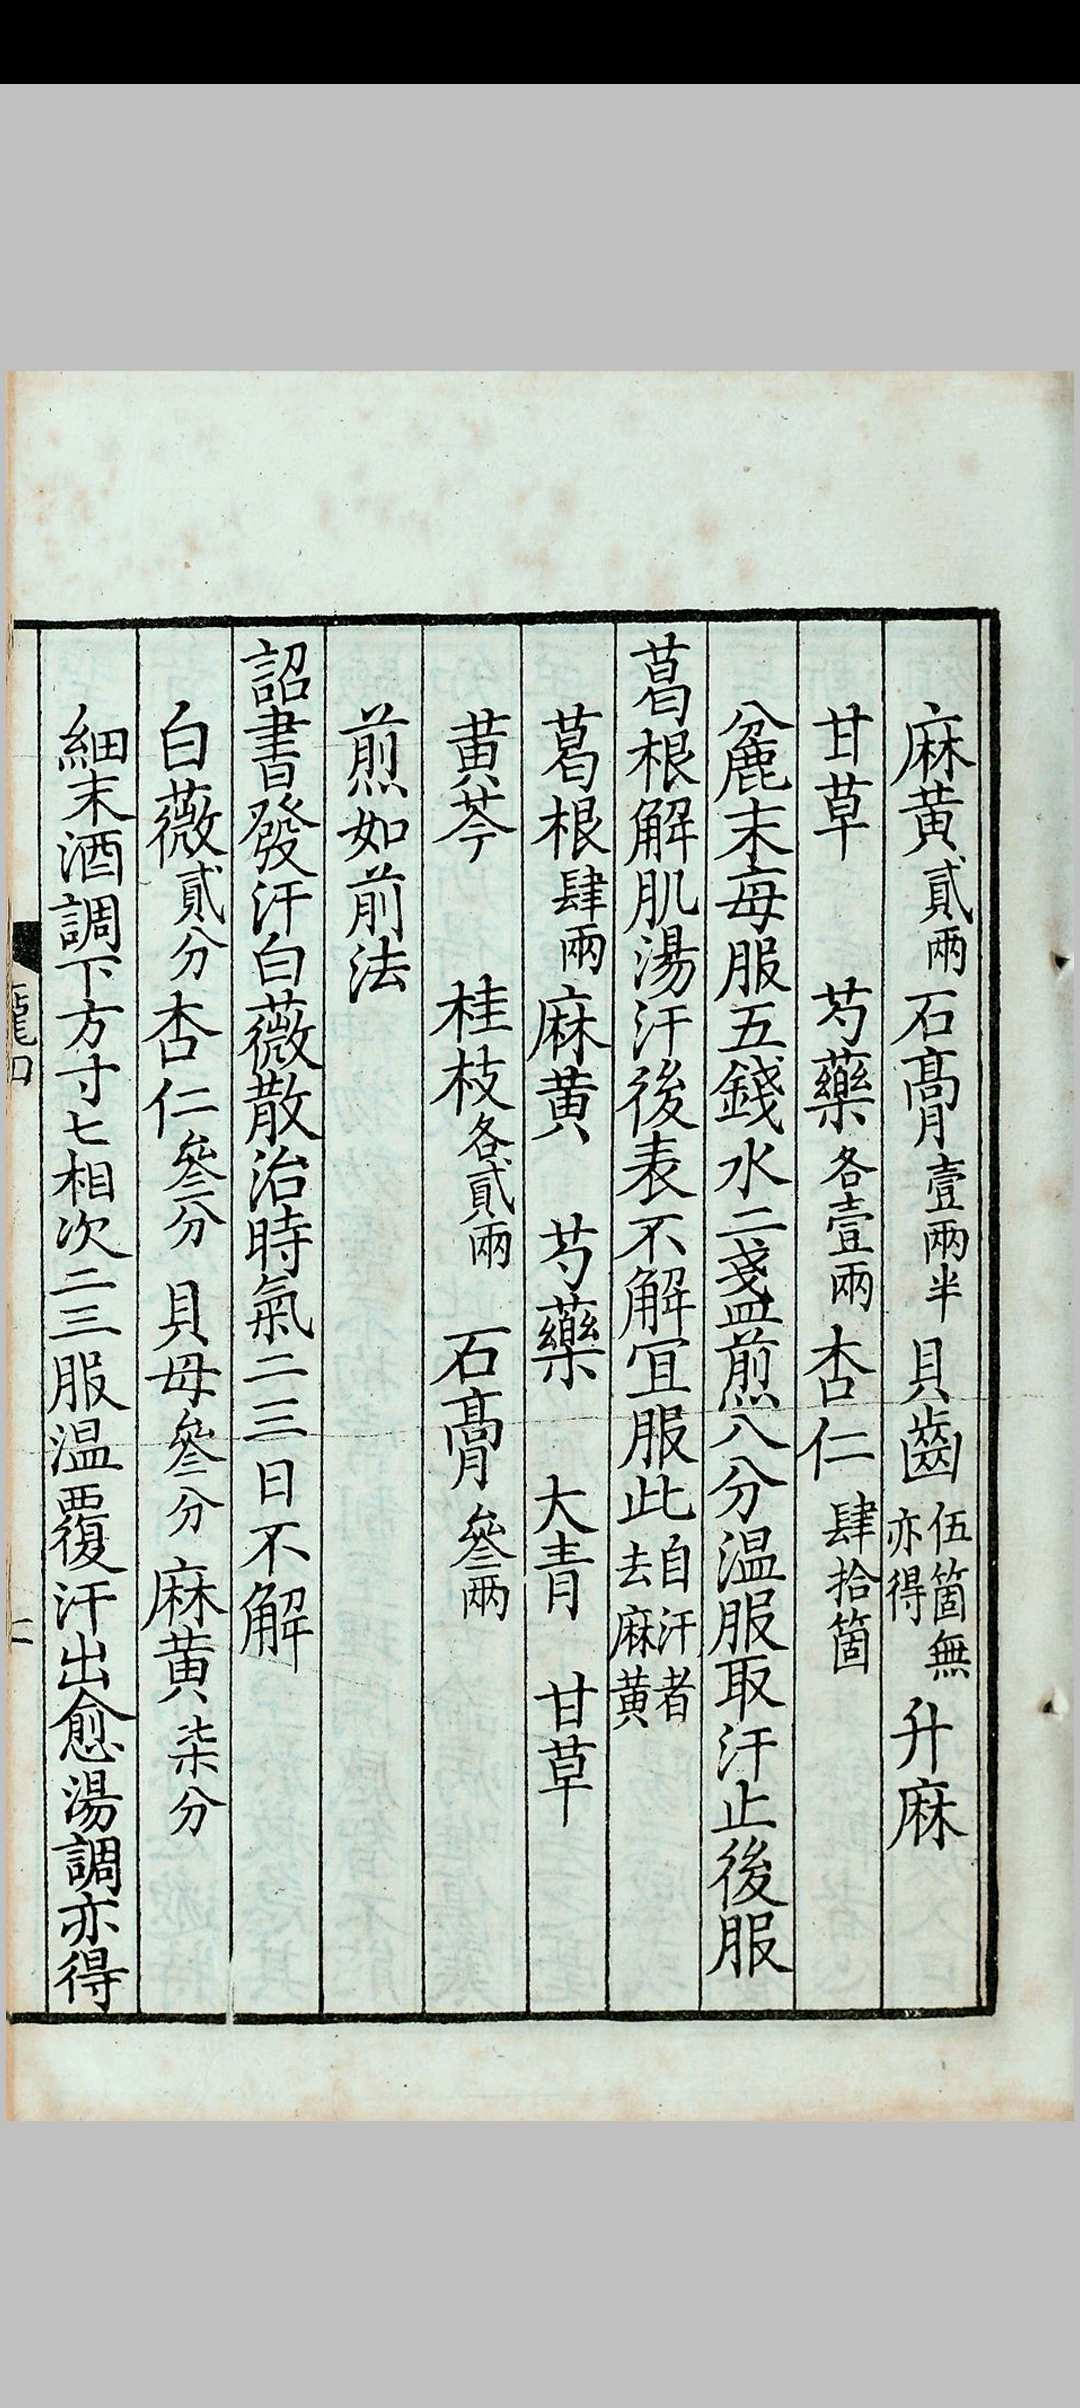 麻黄貳兩石膏壹兩半貝齒伍箇無亦得升麻
甘草芍藥各壹兩杏仁肆拾箇
㕮麁末每服五錢水二盞煎八分温服取汗止後服
葛根解肌湯汗後表不解宜服此自汗者去麻黄
葛根肆兩麻黄芍藥大青甘草
黄芩桂枝各貳兩石膏叄兩
煎如前法
詔書發汗白薇散治時氣二三日不解
白薇貳分杏仁叄分貝母叄分麻黄柒分
細末酒調下方寸匕相次二三服温覆汗出愈湯調亦得